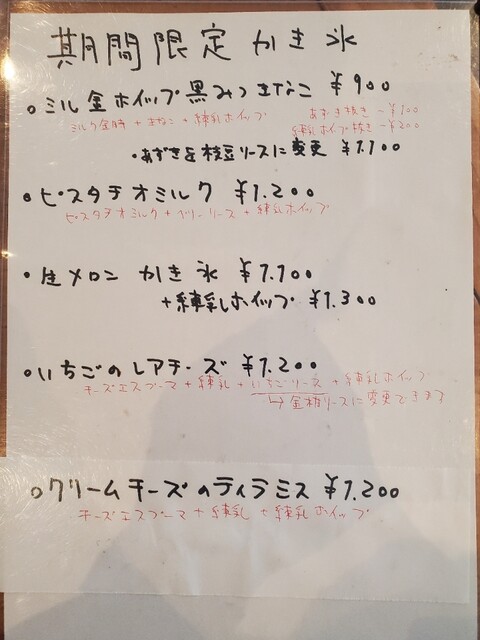 期間限定かき氷
○ミル金ホイップ黒みつきなこ ¥900
ミルク金時+きなこ+練乳ホイップ
あずき抜き -¥100
練乳ホイップ抜き -¥200
・あずきを枝豆ソースに変更 ¥1.100
・ピスタチオミルク ¥1.200
ピスタチオミルク+ベリーソース+練乳ホイップ
・生メロン かき氷 ¥1.100
+練乳ホイップ ¥1.300
・いちごのレアチーズ ¥1.200
チーズエスプーマ+練乳+いちごソース+練乳ホイップ
↳金柑ソースに変更できます
○クリームチーズのティラミス ¥1.200
チーズエスプーマ+練乳+練乳ホイップ